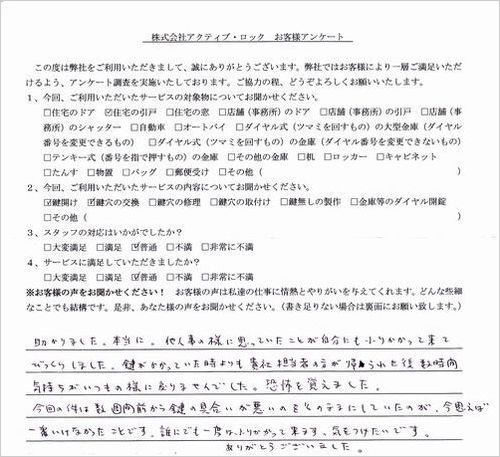 株式会社アクティブ・ロック　お客様アンケート
この度は弊社をご利用いただきまして、誠にありがとうございます。弊社ではお客様により一層ご満足いただ
けるよう、アンケート調査を実施いたしております。ご協力の程、どうぞよろしくお願いいたします。
1、今回、ご利用いただいたサービスの対象物についてお聞かせください。
□住宅のドア ☑住宅の引戸 □住宅の窓 □店舗（事務所）のドア □店舗（事務所）の引戸 □店舗（事
務所）のシャッター □自動車 □オートバイ □ダイヤル式（ツマミを回すもの）の大型金庫（ダイヤル
番号を変更できるもの） □ダイヤル式（ツマミを回すもの）の金庫（ダイヤル番号を変更できないもの）
□テンキー式（番号を指で押すもの）の金庫 □その他の金庫 □机 □ロッカー □キャビネット
□たんす □物置 □バッグ □郵便受け □その他（　　　）
2、今回、ご利用いただいたサービスの内容についてお聞かせください。
☑鍵開け ☑鍵穴の交換 □鍵穴の修理 □鍵穴の取付け □鍵無しの製作 □金庫等のダイヤル開錠
□その他（　　　）
3、スタッフの対応はいかがでしたか？
□大変満足 □満足 ☑普通 □不満 □非常に不満
4、サービスに満足していただきましたか？
□大変満足 □満足 ☑普通 □不満 □非常に不満
※お客様の声をお聞かせください！　お客様の声は私達の仕事に情熱とやりがいを与えてくれます。どんな些細
なことでも結構です。是非、あなた様の声をお聞かせください。（書き足りない場合は裏面にお願い致します。）
助かりました。本当に。他人事の様に思っていたことが自分にもふりかかって来て
びっくりしました。鍵がかかっていた時よりも貴社担当者の方が帰られた後 数時間
気持ちがいつもの様に戻りませんでした。恐怖を覚えました。
今回の件は数週間前から鍵の具合いが悪いのをそのままにしていたのが、今思えば
一番いけなかったことです。誰にでも一度はふりかかって来ます、気をつけたいです。
ありがとうございました。